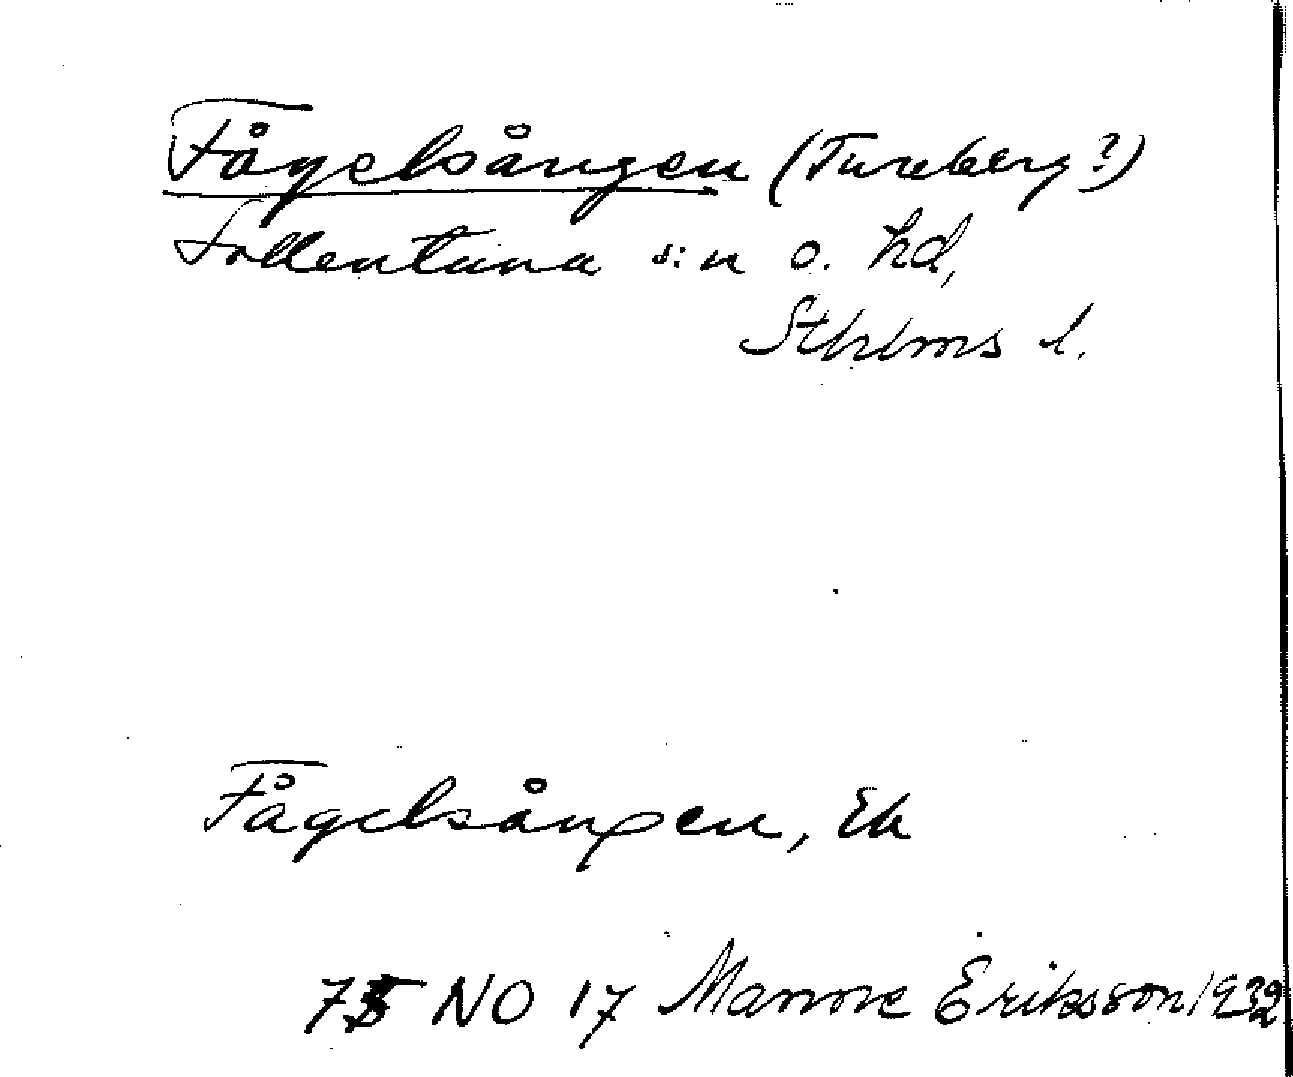 Fågelsången (Tureberg?)
Sollentuna s:n o. hd,
Sthlms l.
Fågelsången, Ek
75 NO 17 Manne Eriksson 1932